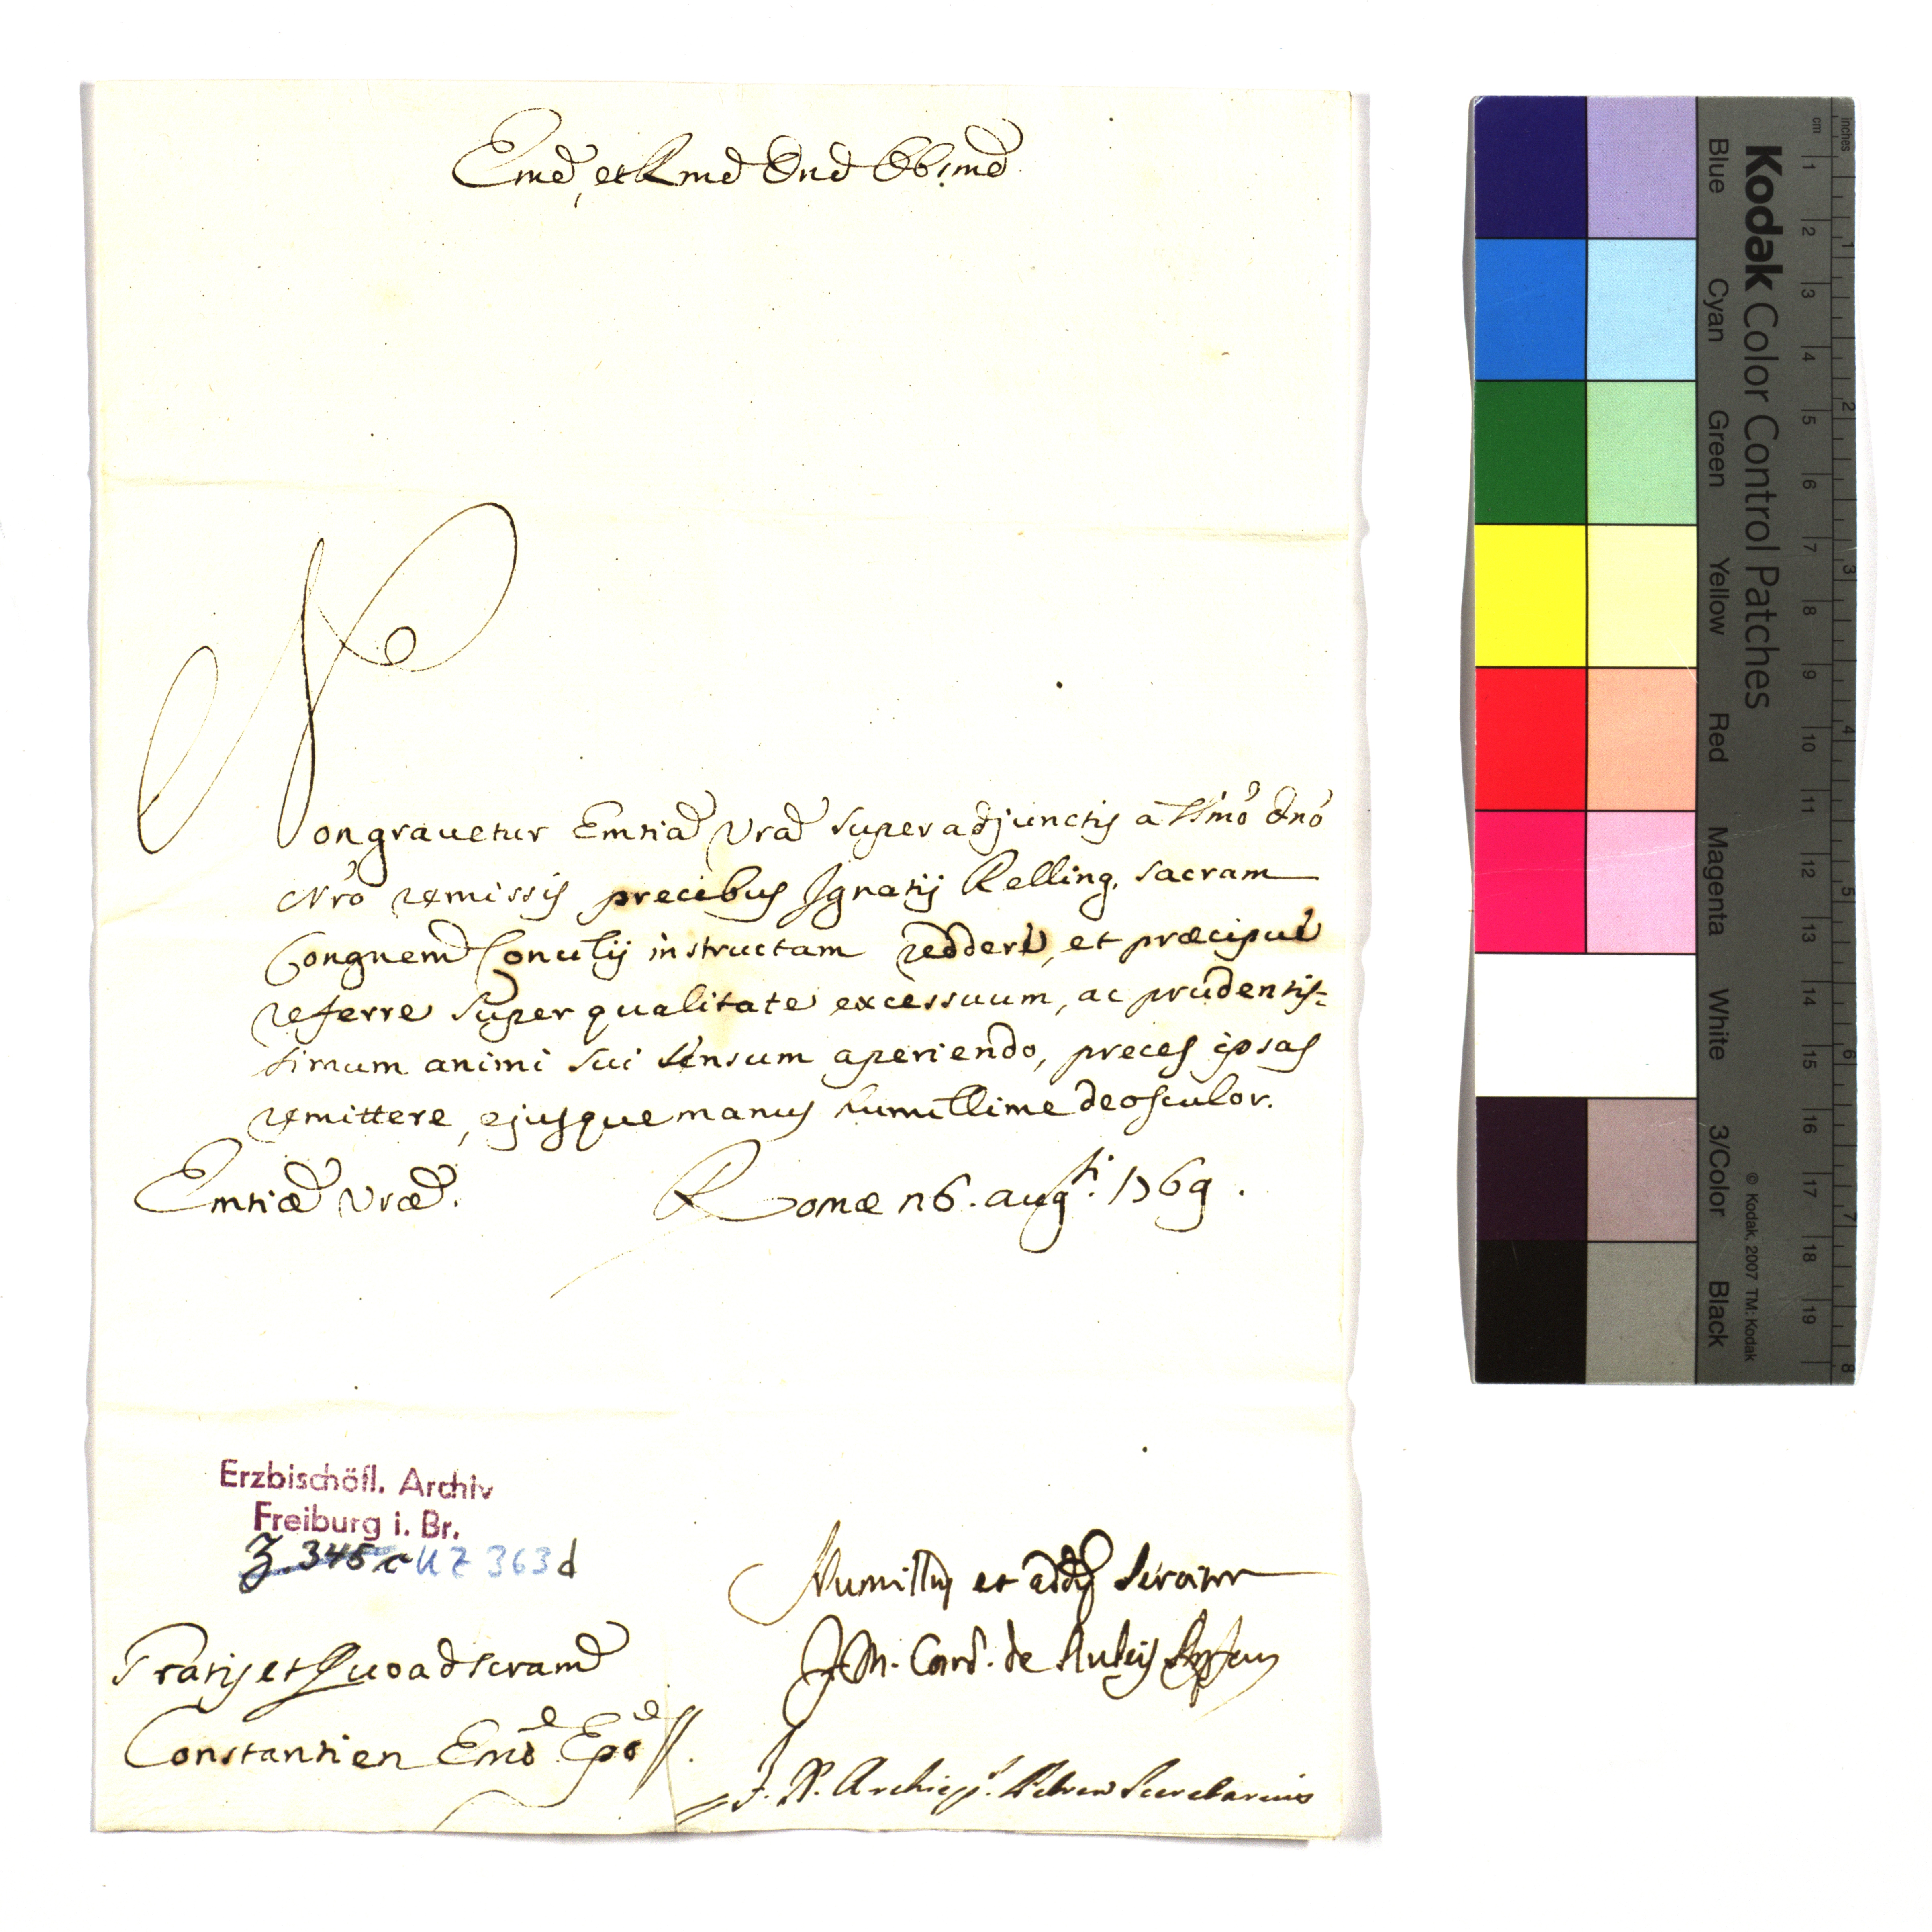 Eme, et Rme Dne Obsme
Non gravetur Emtia Vra super adjunctis a SSmo Dno
Nro remissis precibus Ignatij Kelling, sacram
Congnem Concilij instructam reddere, et præcipue
referre super qualitate excessuum, ac prudentis-
simum animi sui sensum aperiendo, preces ipsas
remittere, ejusque manus humillime deosculor.
Emtiæ Vræ. Romæ 26. augti. 1769.
Erzbischöfl. Archiv
Freiburg i. Br.
Z. 345 c UZ 363 d
Humillus et addus
J. M. Card. de
Gratis et Quoad scram
Constantien Emo Epo
J. P. Archiep. Secretarius
Kodak Color Control Patches
Blue Cyan Green Yellow Red Magenta White 3/Color Black
© Kodak, 2007 TM: Kodak
inches 1 2 3 4 5 6 7 8
cm 1 2 3 4 5 6 7 8 9 10 11 12 13 14 15 16 17 18 19